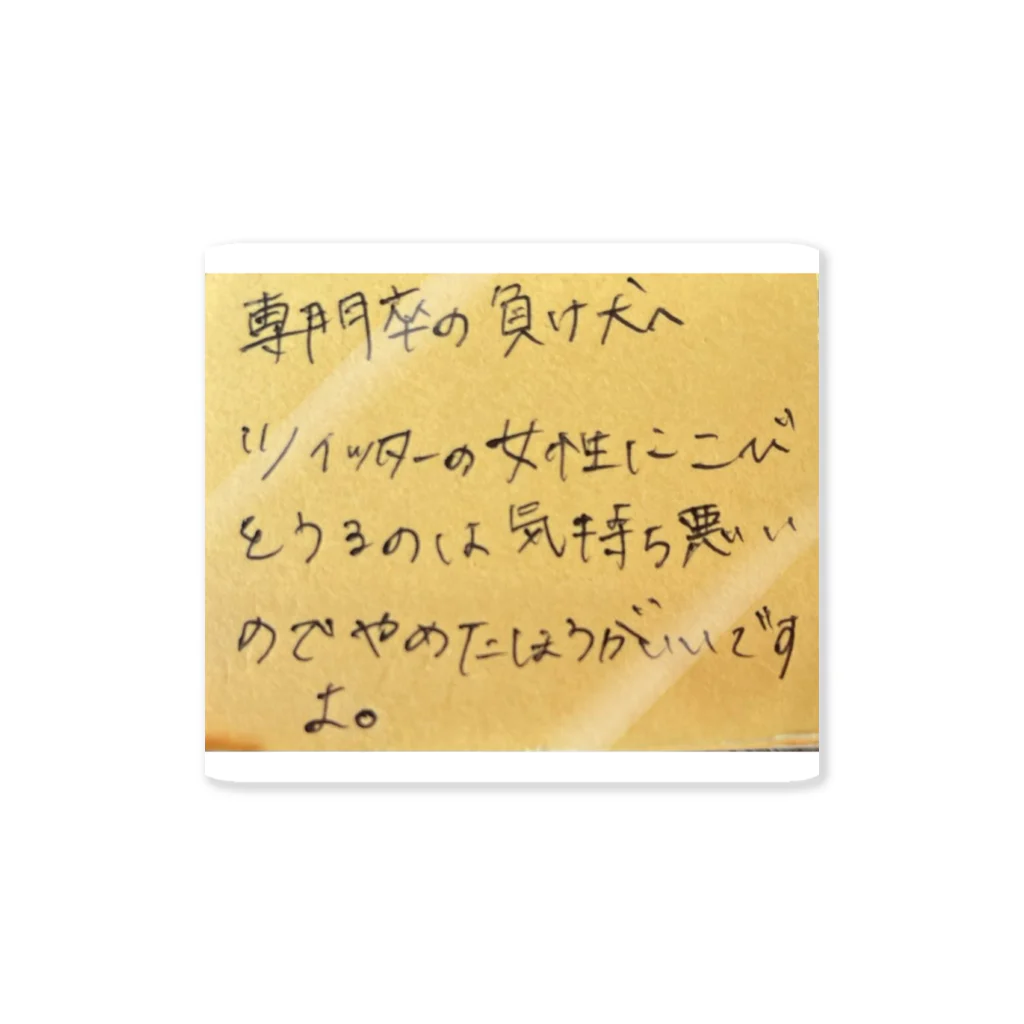 専門卒の負け犬へ
ツイッターの女性にこび
をうるのは気持ち悪い
のでやめたほうがいいです
よ。